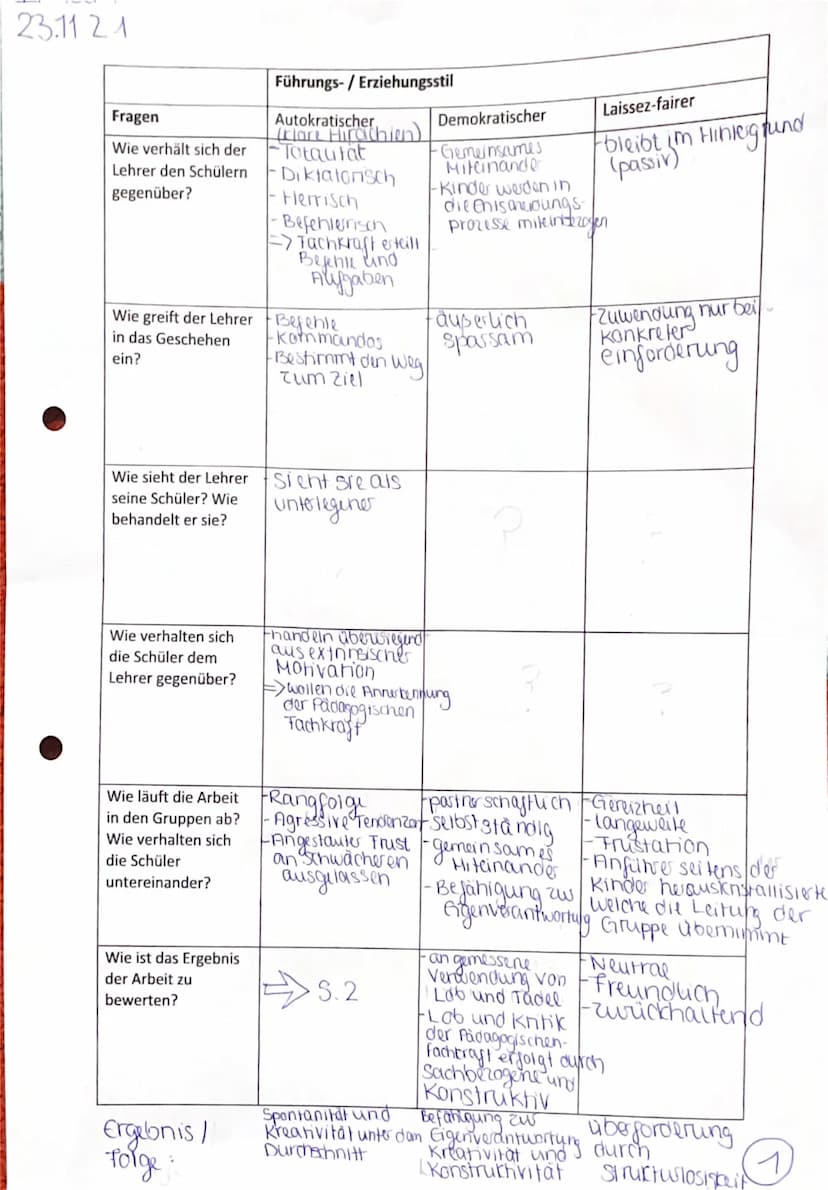 23.11 21
Führungs- / Erziehungsstil
Fragen
Autokratischer
(klare Hirachien)
Demokratischer
Laissez-fairer
Wie verhält sich der
Lehrer den Schülern
gegenüber?
- Totalität
- Diktatorisch
- Herrisch
- Befehlerisch
=> Fachkraft erteilt
Befehle und
Aufgaben
- Gemeinsames
Miteinander
- Kinder werden in
die Entscheidungs-
prozesse miteinbezogen
- bleibt im Hintergrund
(passiv)
Wie greift der Lehrer
in das Geschehen
ein?
- Befehle
- Kommandos
- Bestimmt den Weg
zum Ziel
- äußerlich
sparsam
- Zuwendung nur bei
konkreter
einforderung
Wie sieht der Lehrer
seine Schüler? Wie
behandelt er sie?
Sieht sie als
unterlegener
?
-
Wie verhalten sich
die Schüler dem
Lehrer gegenüber?
- handeln überwiegend
aus extrinsischer
Motivation
=> wollen die Annerkennung
der Pädagogischen
Fachkraft
?
?
Wie läuft die Arbeit
in den Gruppen ab?
Wie verhalten sich
die Schüler
untereinander?
- Rangfolge
- Agressive Tendenzen
- Angestauter Frust
an Schwächeren
ausgelassen
- partnerschaftlich
- selbstständig
- gemeinsames
Miteinander
- Befähigung zur
Eigenverantwortung
- Gereiztheit
- langeweile
- Frustation
- Anführer seitens der
Kinder
welche die Leitung der
Gruppe übernimmt
Wie ist das Ergebnis
der Arbeit zu
bewerten?
=> S.2
- angemessene
Verwendung von
Lob und Tadel
- Lob und Kritik
der Pädagogischen-
fachkraft erfolgt durch
Sachbezogene und
Konstruktiv
- Neutral
- Freundlich
- zurückhaltend
Ergebnis /
Folge:
Spontanität und
Kreativität unter dem
Durchschnitt
Befähigung zur
Eigenverantwortung
Kreativität und
Konstruktivität
überforderung
durch
strukturlosigkeit
1